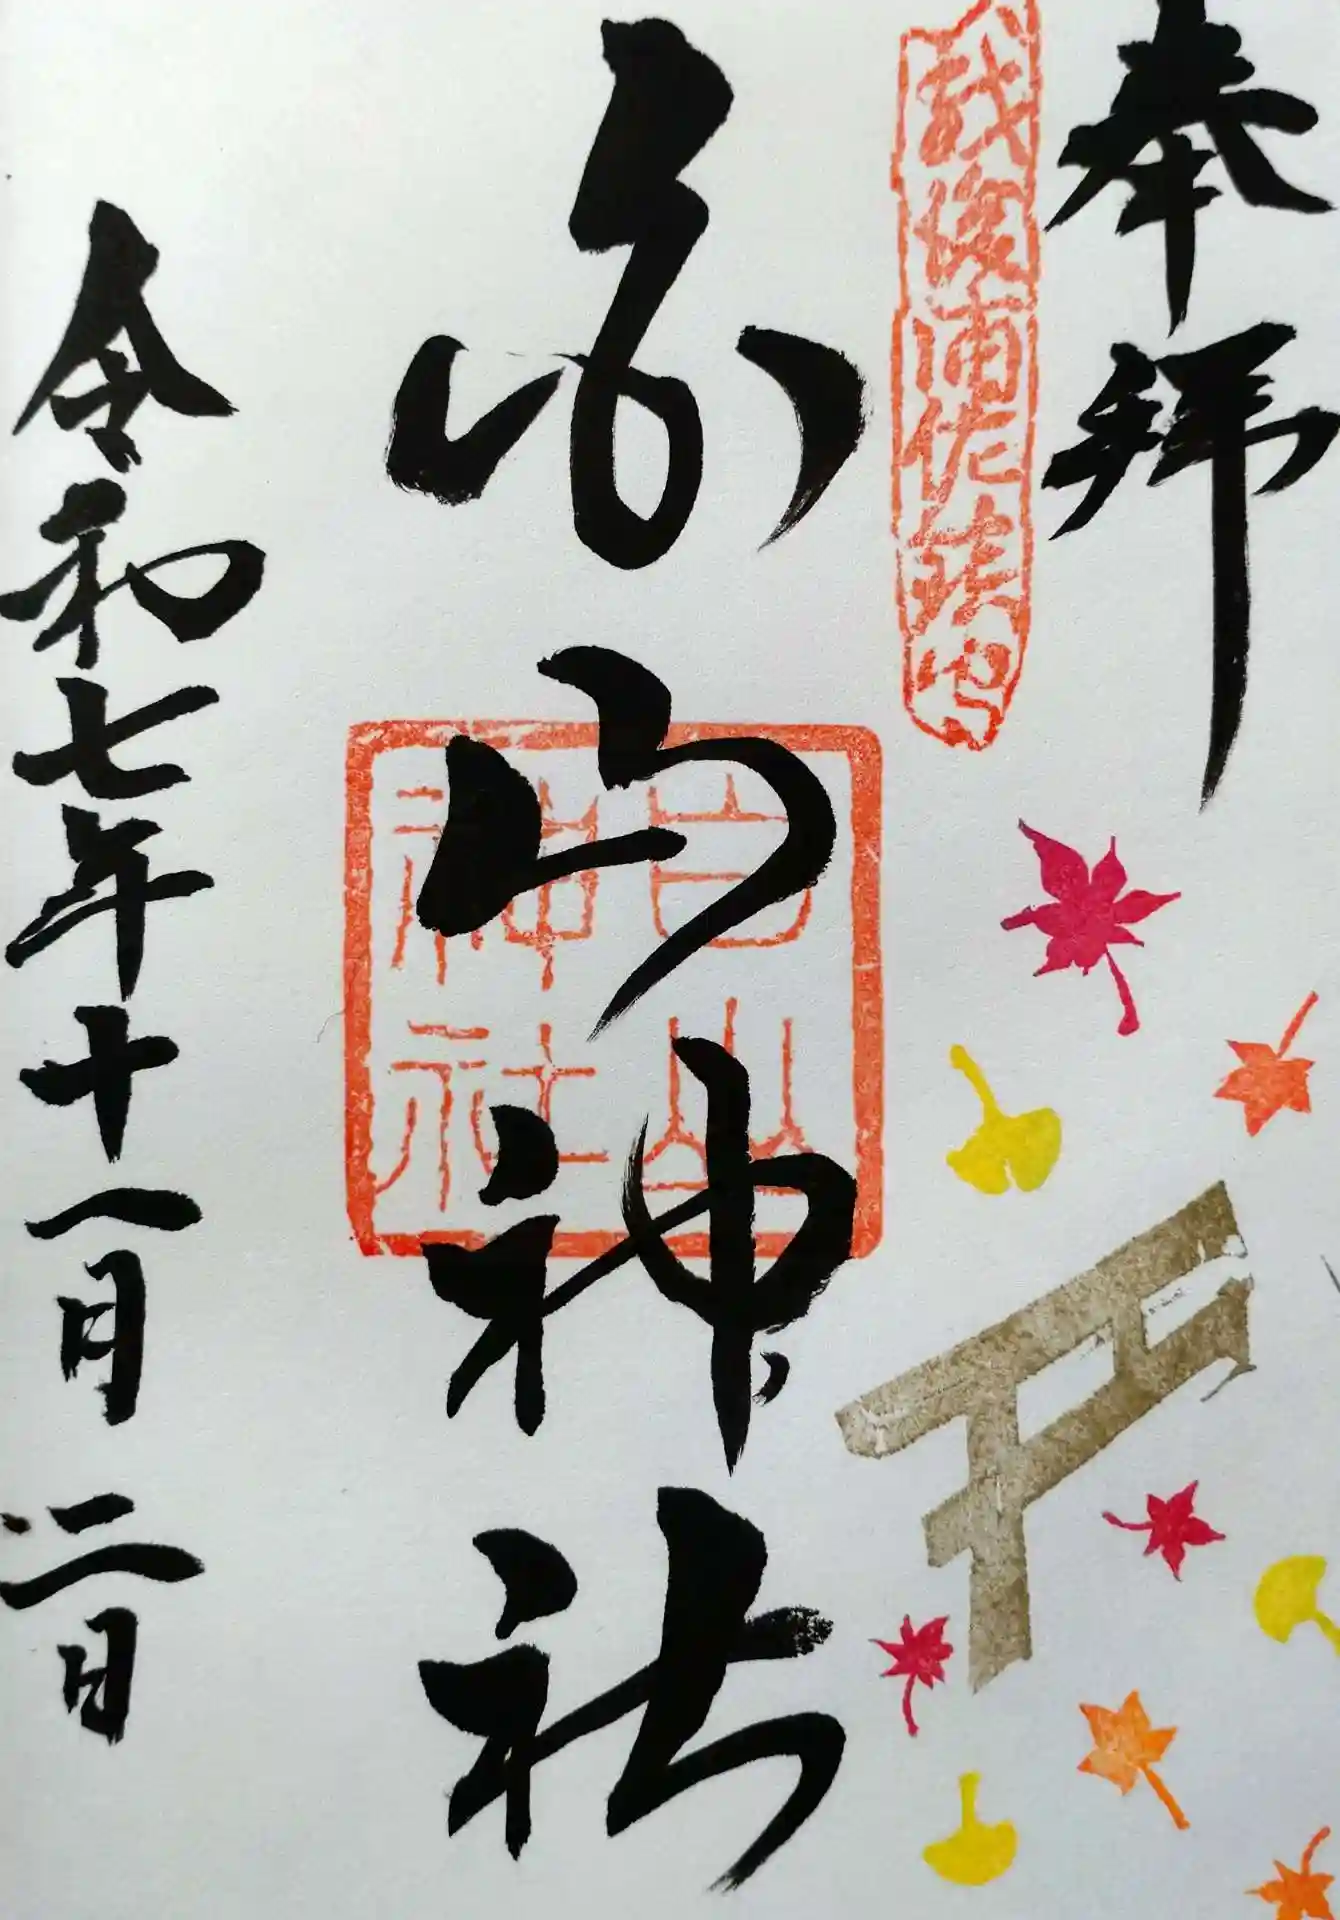 奉拝
越後浦佐鎮守
白山神社
白山
神社
令和七年十一月二日